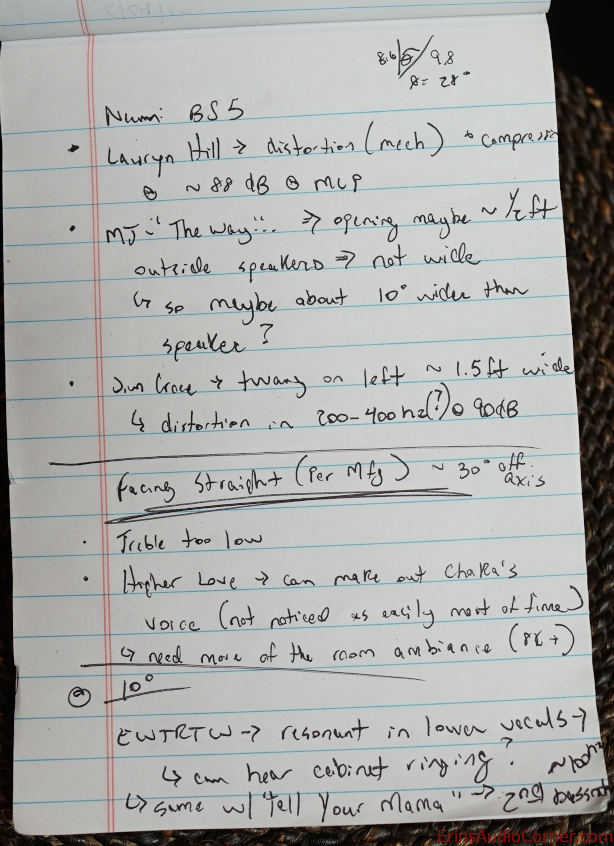 8.6 θ 9.8
θ = 28°
Numi BS5
• Lauryn Hill → distortion (mech) & compression
@ ~ 88 dB @ MLP
• MJ - "The Way"... ⇒ opening maybe ~ 1/2 ft
outside speakers ⇒ not wide
↳ so maybe about 10° wider than
speaker?
• Jim Croce → twang on left ~ 1.5 ft wide
↳ distortion in 200-400hz(?) @ 90dB
Facing Straight (Per Mfg) ~ 30° off
axis
• Treble too low
• Higher Love → can make out Chaka's
voice (not noticed as easily most of time)
↳ need more of the room ambiance (8K+)
@ 10°
EWTRTW → resonant in lower vocals →
↳ can hear cabinet ringing?
↳ same w/ "Tell Your Mama" →
ErinsAudioCorner.com